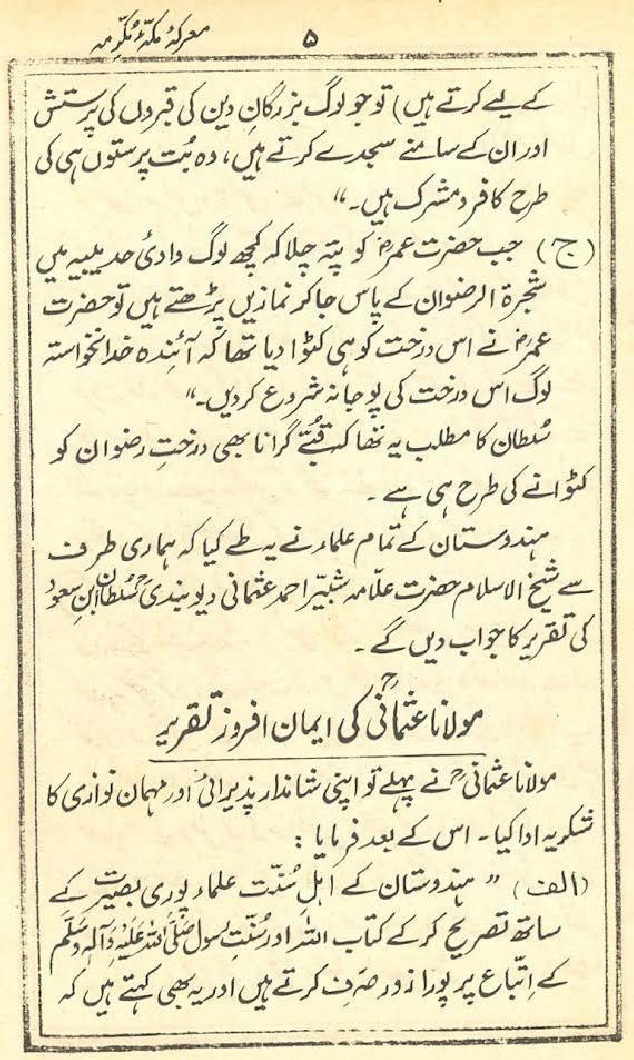 معرکۂ مکّۂ مکرّمہ
۵
کے لیے کرتے ہیں) تو جو لوگ بزرگانِ دین کی قبروں کی پرستش
اور ان کے سامنے سجدے کرتے ہیں، وہ بُت پرستوں ہی کی
طرح کافر و مشرک ہیں۔“
(ج) جب حضرت عمرؓ کو پتہ چلا کہ کچھ لوگ وادیٔ حدیبیہ میں
شجرۃ الرضوان کے پاس جا کر نمازیں پڑھتے ہیں تو حضرت
عمرؓ نے اس درخت کو ہی کٹوا دیا تھا کہ آئندہ خدانخواستہ
لوگ اس درخت کی پوجا نہ شروع کر دیں۔“
سُلطان کا مطلب یہ تھا کہ قُبّے گرانا بھی درختِ رضوان کو
کٹوانے کی طرح ہی ہے۔
ہندوستان کے تمام علماء نے یہ طے کیا کہ ہماری طرف
سے شیخ الاسلام حضرت علّامہ شبیّر احمد عثمانی دیوبندیؒ سُلطان ابنِ سعود
کی تقریر کا جواب دیں گے۔
مولانا عثمانیؒ کی ایمان افروز تقریر
مولانا عثمانیؒ نے پہلے تو اپنی شاندار پذیرائی اور مہمان نوازی کا
شکریہ ادا کیا۔ اس کے بعد فرمایا :
(الف) ”ہندوستان کے اہلِ سُنّت علماء پوری بصیرت کے
ساتھ تصریح کرکے کتاب اللہ اور سُنّتِ رسول صَلَّی اللہُ عَلَیْہِ وَآلِہٖ وَسَلَّم
کے اِتّباع پر پورا زور صَرف کرتے ہیں اور یہ بھی کہتے ہیں کہ